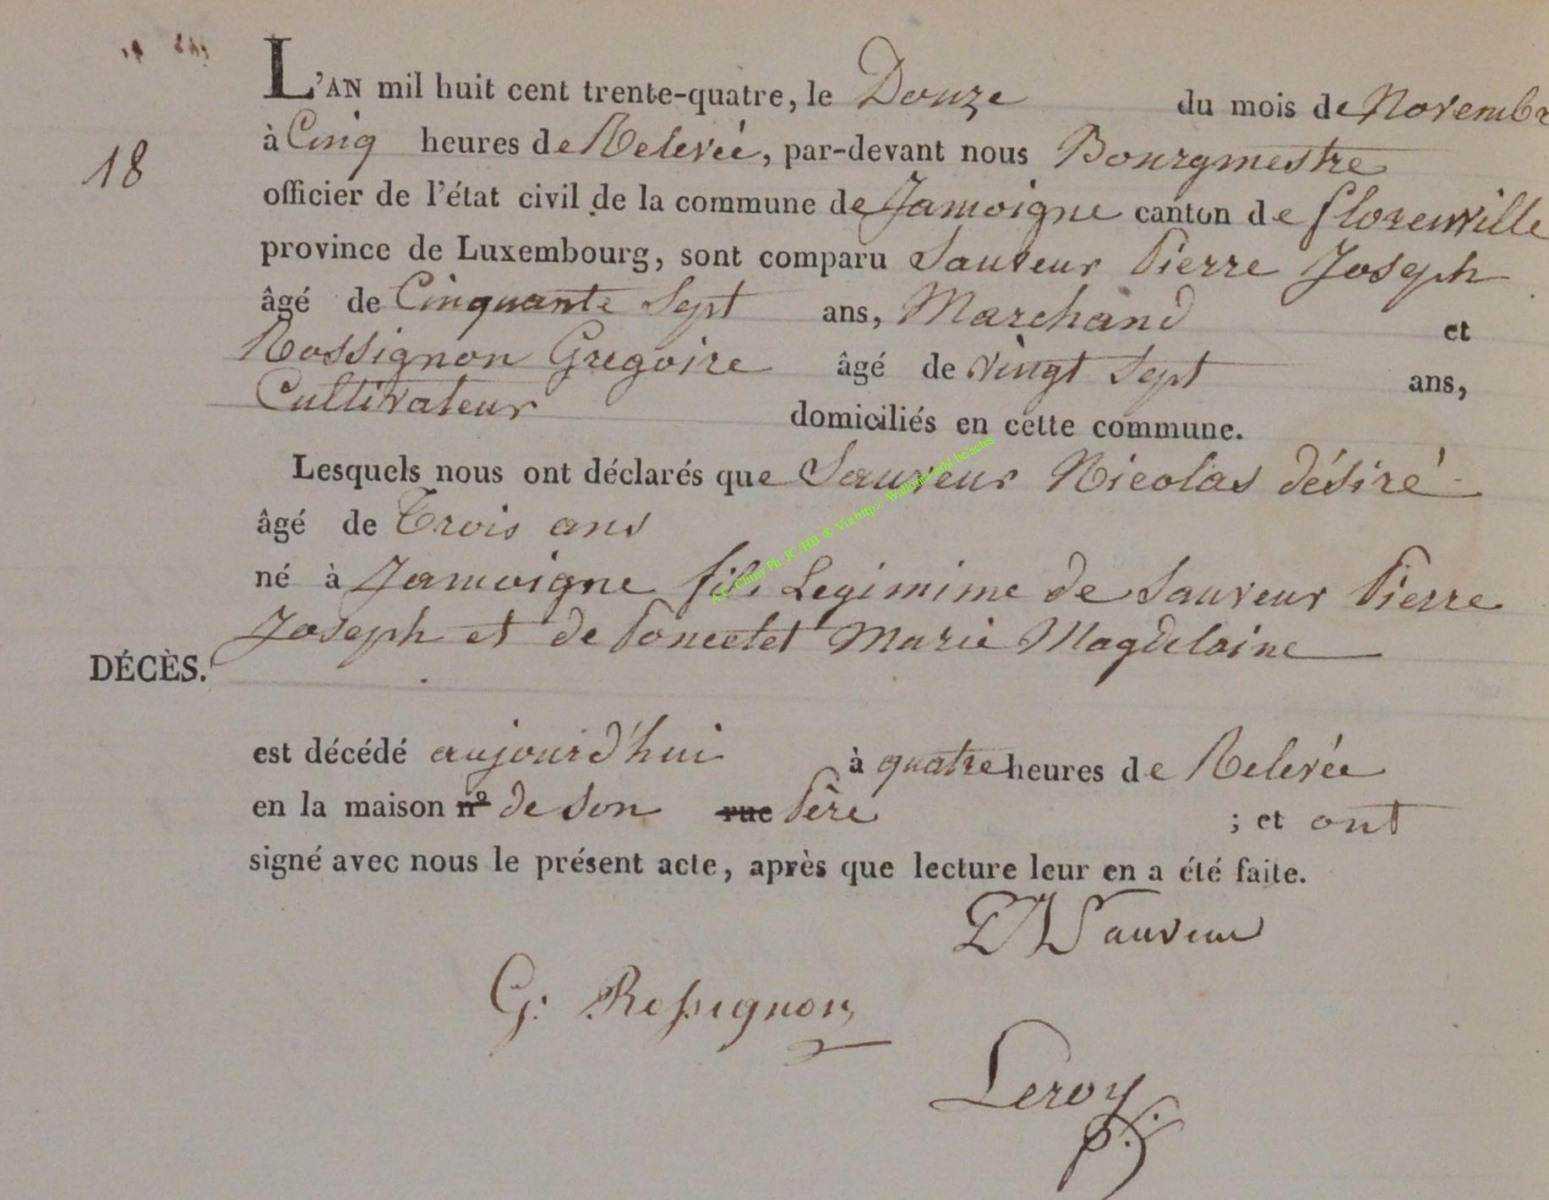 18
L'AN mil huit cent trente-quatre, le Douze du mois de Novembre
à Cinq heures de Relevée, par-devant nous Bourgmestre
officier de l'état civil de la commune de Jamoigne canton de florenville
province de Luxembourg, sont comparu Sauveur Pierre Joseph
âgé de Cinquante Sept ans, Marchand et
Rossignon Gregoire âgé de vingt Sept ans,
Cultivateur domiciliés en cette commune.
Lesquels nous ont déclarés que Sauveur Nicolas désiré
âgé de Trois ans
né à Jamoigne fils Legimime de Sauveur Pierre
Joseph et de Poncelet Marie Magdelaine
DÉCÈS.
est décédé aujourd'hui à quatre heures de Relevée
en la maison n° de Son rue Père ; et ont
signé avec nous le présent acte, après que lecture leur en a été faite.
PJ Sauveur
G. Rossignon
Leroy